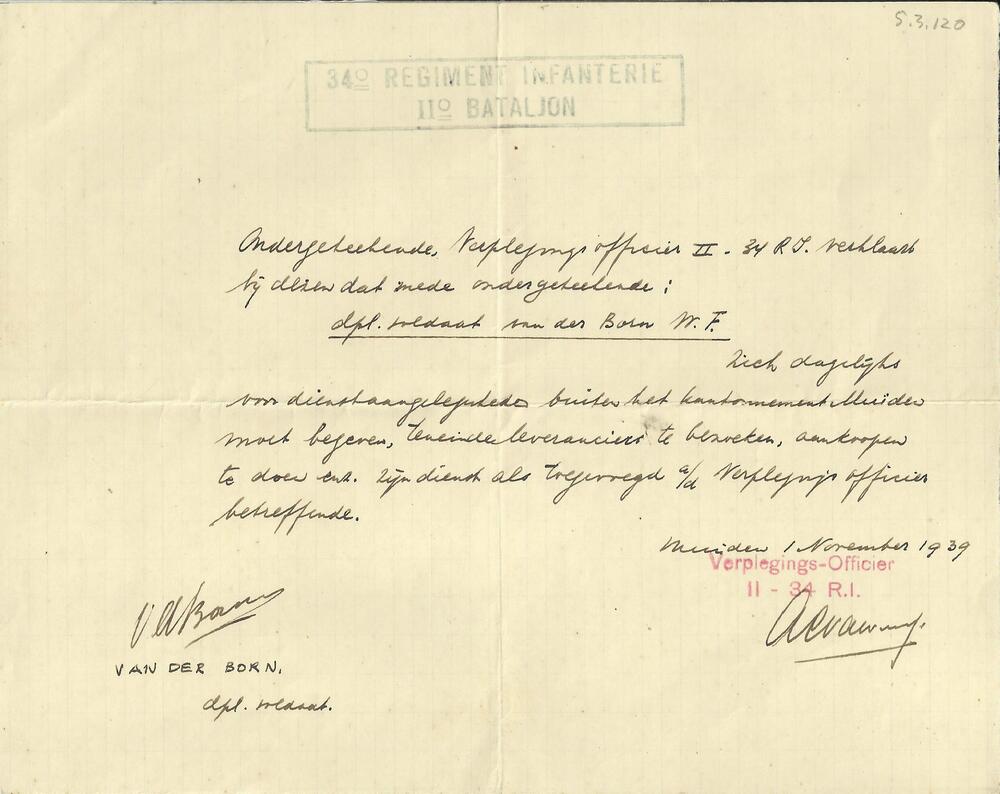 5.3.120
34e REGIMENT INFANTERIE
IIe BATALJON
Ondergeteekende, Verplegings officier II - 34 R.I. verklaart
bij dezen dat mede ondergeteekende:
dpl. soldaat van der Born W. F.
zich dagelijks
voor dienstaangelegenheden buiten het kantonnement Muiden
moet begeven, teneinde leveranciers te bezoeken, aankoopen
te doen enz. zijn dienst als toegevoegd a/d Verplegings officier
betreffende.
Muiden 1 November 1939
Verplegings-Officier
II - 34 R.I.
VdBorn
VAN DER BORN.
dpl. soldaat.